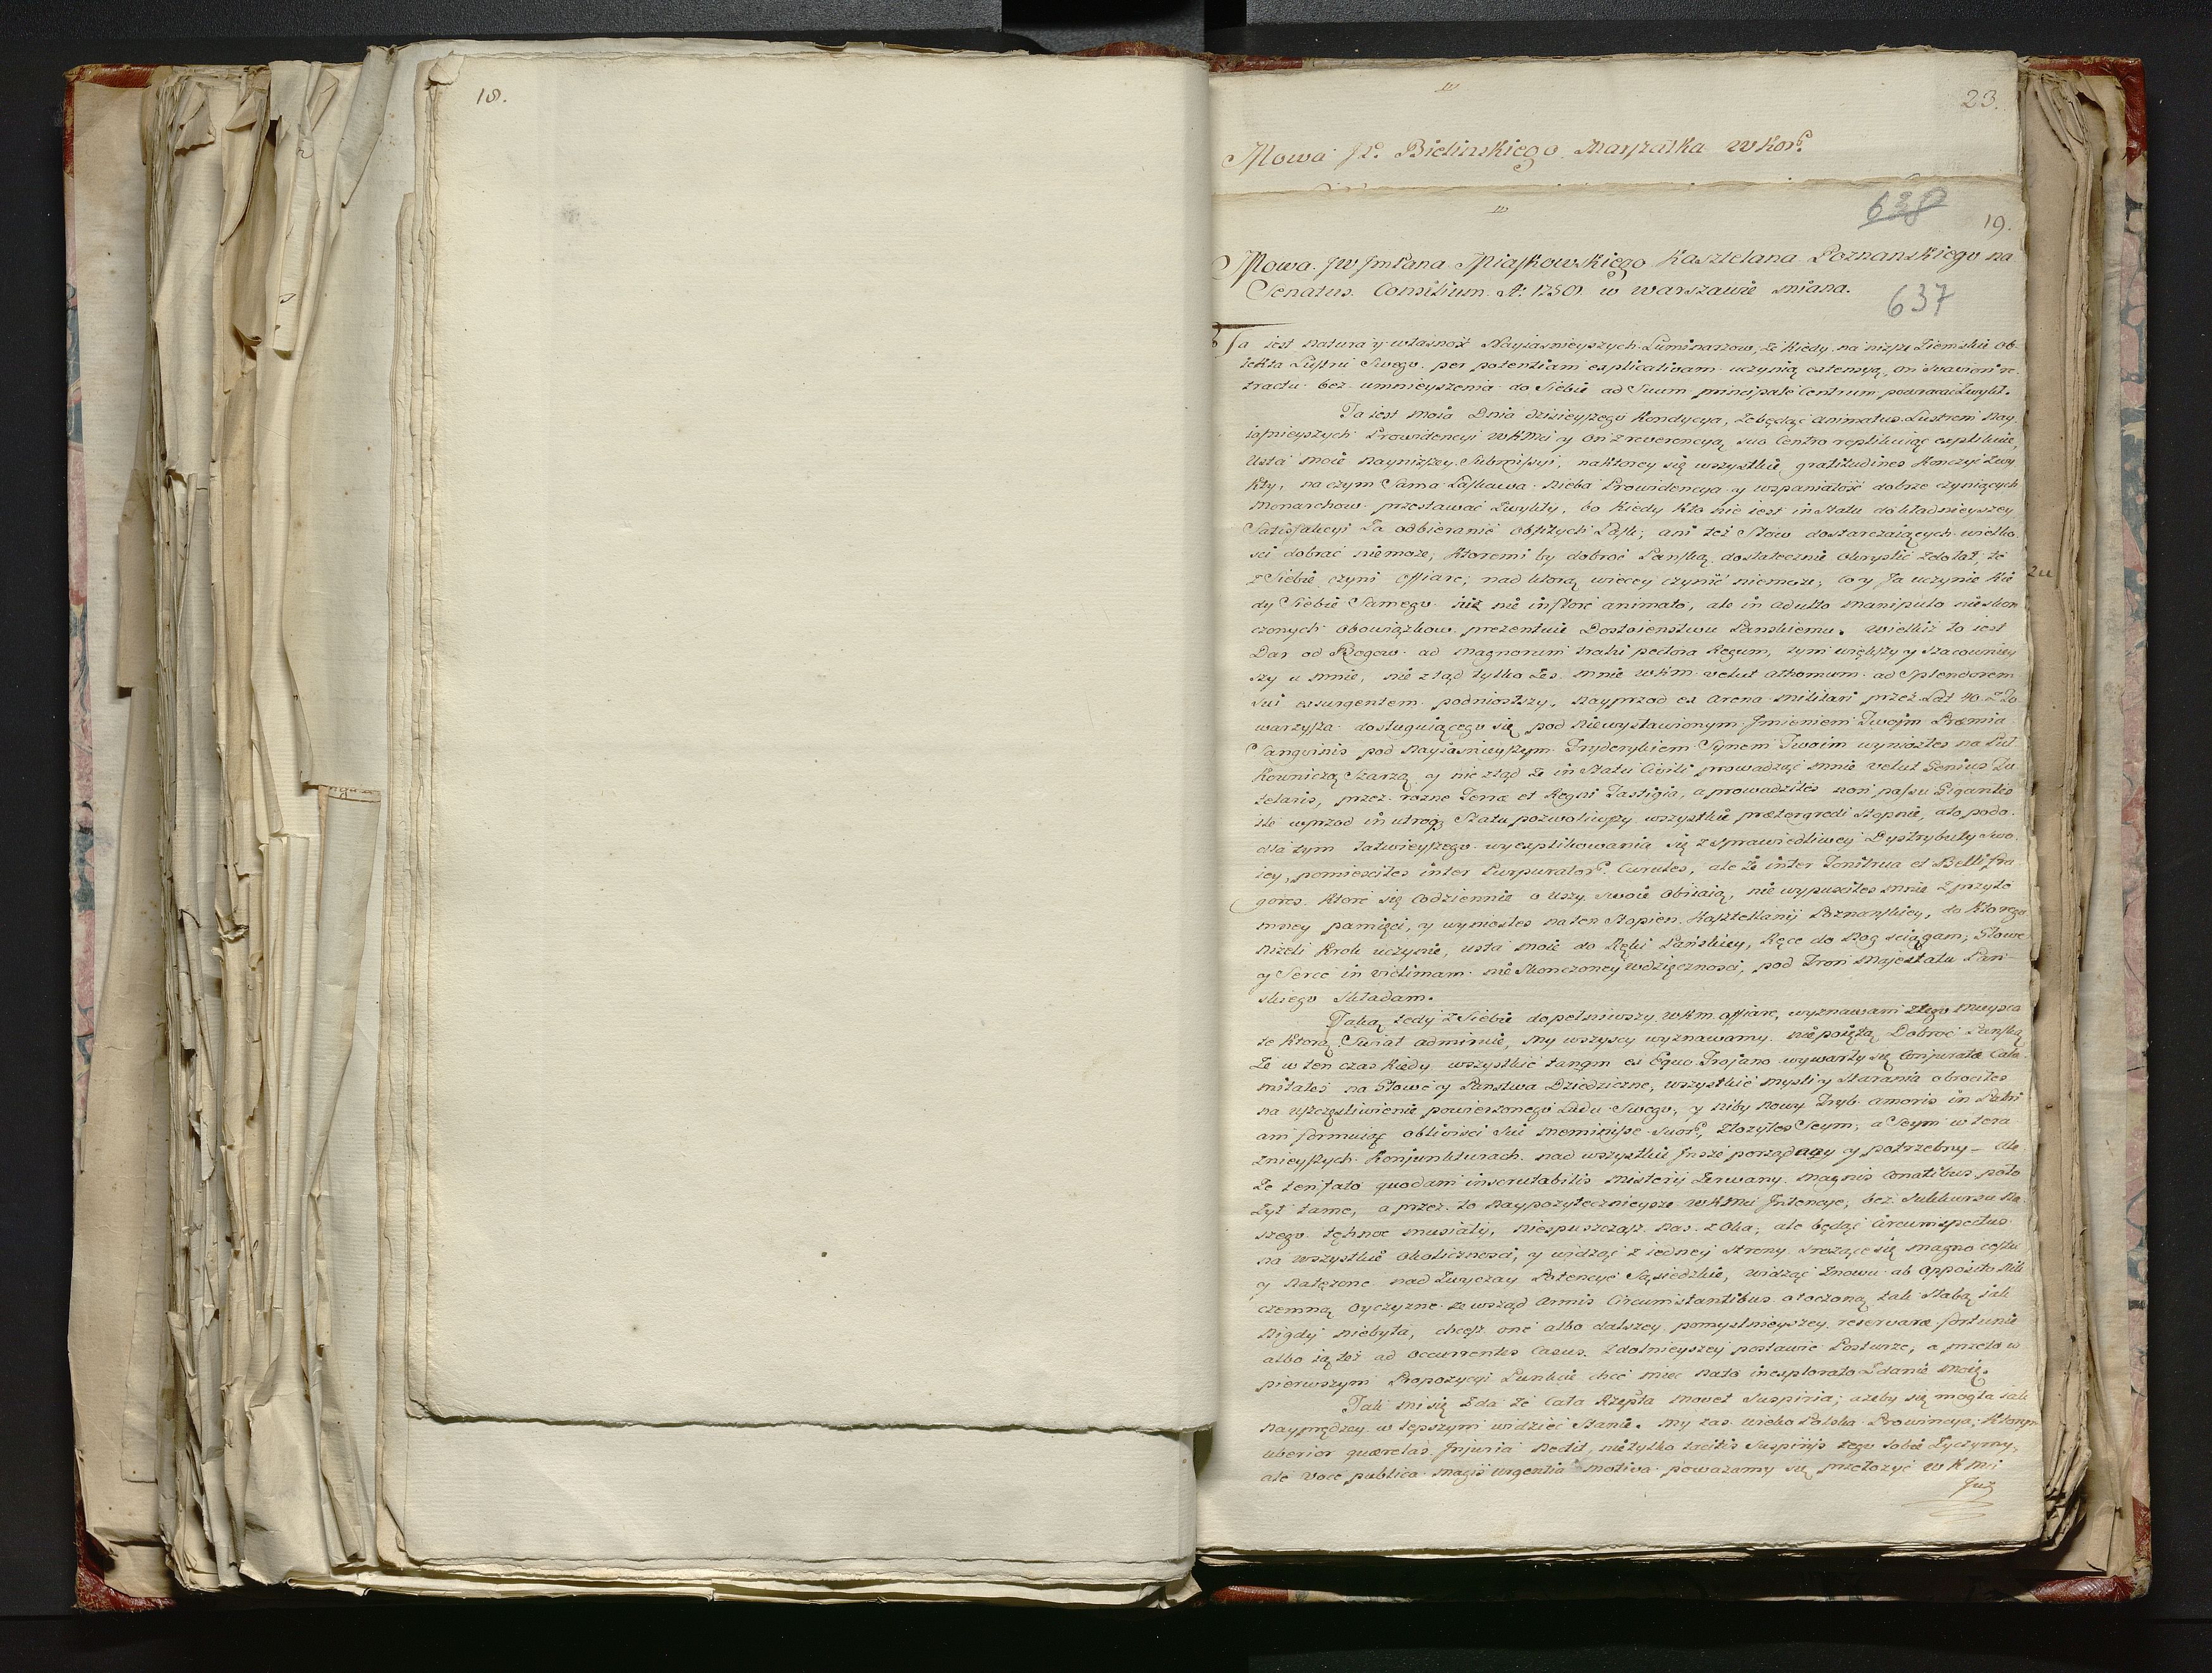 18.
23.
Mowa JP. Bielinskiego Marszałka WKor:
638
19.
Mowa JW JmPana Miaskowskiego Kasztelana Poznanskiego na
Senatus Consilium A: 1750 w Warszawie miana.
637
Ta iest natura y własnosć Nayiasnieyszych Luminarzow, że kiedy na niższe Ziemskie ob-
iekta Lustru Swego per potentiam explicativam uczynią extensyą, on suaviori re-
tractu bez umnieyszenia do Siebie ad Suum principale Centrum powracać zwykł.
Ta iest moia Dnia dzisieyszego Kondycya, że będąc animatus Lustrem Nay
iasnieyszych Prowidencyi WKMci y on z reverencyą suo Centro replikuiąc explikuie,
Usta moie nayniższey Submissyi, na ktorey się wszystkie gratitudines konczyć zwy
kły, na czym Sama Łaskawa Nieba Prowidencya y wspaniałość dobrze czyniących
Monarchow przestawać zwykły, bo kiedy kto nie iest in Statu dokładnieyszey
Satisfakcyi za odbieranie obfitych Łask, ani też Słow dostarczaiących wielko
sci dobrać niemoże, ktoremi by dobroć Pańską dostatecznie okryslić zdołał, to
z Siebie czyni offiarę, nad ktorą więcey czynić niemoże, co y Ja uczynie kie
dy Siebie Samego iuż nie in flore animato, ale in adulto manipulo nieskon
czonych obowiązkow prezentuie Dostoienstwu Panskiemu. Wielkiż to iest
Dar od Bogow ad magnorum trahi pectora Regum, tym większy y szacowniey
szy u mnie, nie ztąd tylko żeś mnie WKM velut athomum ad Splendorem
sui exsurgentem podniosłszy, nayprzod ex arena militari przez Lat 40 z To
warzysza dosługuiącego się pod niewysławionym Jmieniem Twoim Præmia
Sanguinis pod Nayiasnieyszym Fryderykiem Synem Twoim wyniosłes na Puł
kowniczą Szarzą, y nie ztąd że in Statu Civili prowadząc mnie velut Genius Tu
telaris, przez rozne Terræ et Regni Fastigia, aprowadziłeś non passu Gigantis
ile wprzod in utroq Statu pozwoliwszy wszystkie prætergredi stopnie, ato podo
dla tym łatwieyszego wyexplikowania się z sprawiedliwey Dystrybuty Swo
iey, pomieściłes inter Purpurator: Curules, ale że inter Tonitrua et Belli fra
gores ktore się codziennie o uszy swoie obiiaią, nie wypusciłes mnie z przyto
mney pamięci, y wyniosłes na ten Stopien Kasztellanij Poznanskiey, do ktorego
niżeli krok uczynie, usta moie do Ręki Pańskiey, Ręce do Nog sciągam, Głowe
y Serce in victimam nieskonczoney wdzięcznosci, pod Tron Majestatu Pan-
skiego składam.
Taką tedy z Siebie dopełniwszy WKM offiarę, wyznawam z tego mieysca
że ktorą Swiat admiruie, my wszyscy wyznawamy niepoiętą Dobroć Pańską
że w ten czas kiedy wszystkie tanqm ex Equo Trojano wywarły się Conjuratæ Cala
mitates na Głowę y Panstwa Dziedziczne, wszystkie mysli y starania obrociłes
na uszczęśliwienie powierzonego Ludu Swego, y niby Nowy Tryb amoris in Patri
am formuiąc oblivisci sui meminisse suor:, złożyłes Seym, a Seym w tera
znieyszych Konjunkturach nad wszystkie Jnsze porządany y potrzebny - ale
że ten fato quodam inscrutabilis misterij zerwany magnis conatibus poło
żył tamę, a przez to naypożytecznieysze WKMci Jntencye, bez Sukkursu Na
szego tęhnoc musiały, niespuszczasz nas z Oka, ale będąc Circumspectus
na wszystkie okolicznosci, y widząc z iedney strony srozące się magno cestu
y natężone nad zwyczay Potencye Sąsiedzkie, widząc znowu ab opposito nik
czemną Oyczyzne ze wsząd Armis Circumstantibus otoczoną tak słabą iak
nigdy niebyła, chcesz onę albo dalszey pomyslnieyszey reservare fortunie
albo ią też ad occurrentes Casus zdolnieyszey postawic Posturze, a przeto w
pierwszym Propozycyi Punkcie chce miec nato inexplorato zdanie moie.
Tak mi się zda że cała Rzepta movet Suspiria, azeby się mogła iak
nayprędzey w lepszym widzieć stanie. My zas wielko Polska Prowincya, ktorym
uberior querelas Jnjuria Dedit, nietylko tacitis Suspirijs tego sobie życzymy,
ale voce publica magis urgentia motiva poważamy się przełożyć WKMci
Juz